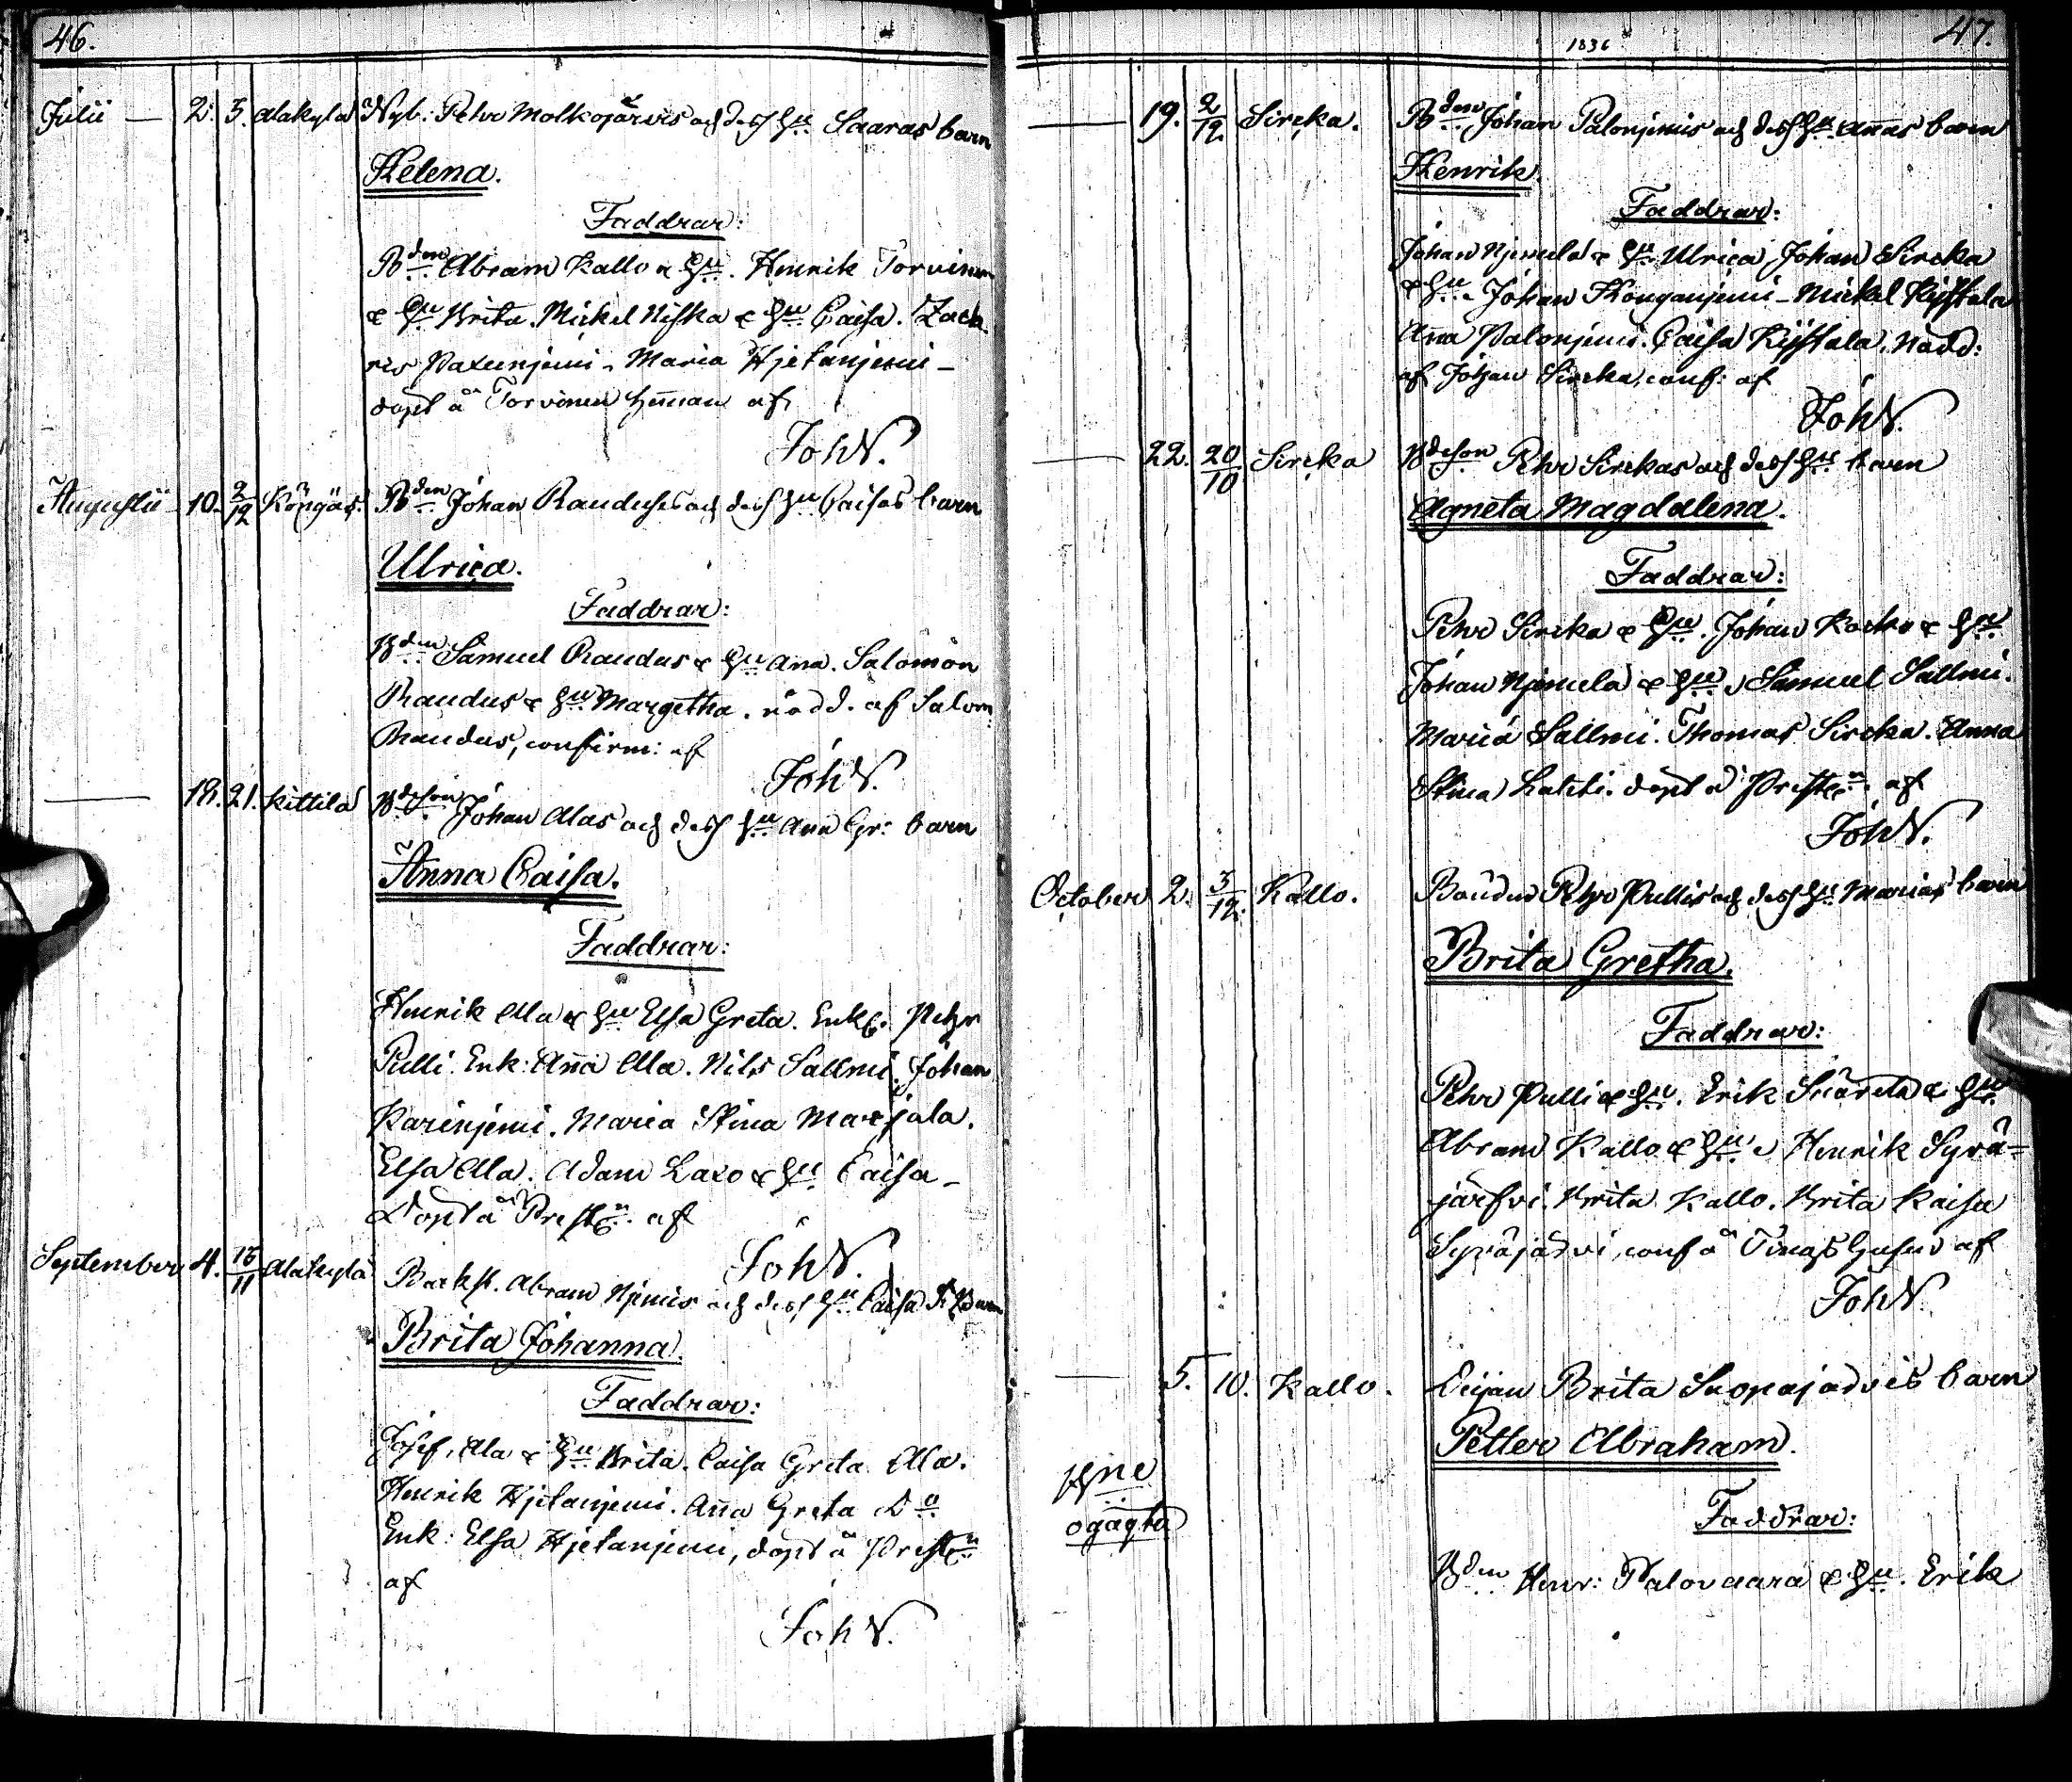 46.
Julii — 2. 5. Alakylä Nyb: Pehr Molkojärvis och dess hu Saaras barn
Helena.
Faddrar:
Bden Abram Kallo & hu. Henrik Torvinen
& hu Brita. Mickel Niska & hu Caisa. Zach
ris Maria Hjetanjemi –
döpt å Torvinen af
Joh N.
Augustii 10. 9/12 Köngäs. Bden Johan Rauduses och dess hu Caisas barn
Ulrica.
Faddrar:
Bden Samuel Raudus & hu Ana. Salomon
Raudus & hu Margetha. nödd. af Salom:
Raudus, confirm: af
Joh N.
— 18. 21. Kittilä Bdeson Johan Alas och dess hu Ana Gr: barn
Anna Caisa.
Faddrar:
Henrik Ala & hu Elsa Greta. Enkl. Pehr
Pulli. Enk: Ana Ala. Nils Sallmi. Johan
Karinjemi. Maria Stina Marxjala.
Elsa Ala. Adam Laxo & hu Caisa –
Döpt å Prestg af
Joh N.
September 4. 15/11 Alakylä Backst. Abram Njemis och dess hu Caisa barn
Brita Johanna.
Faddrar:
Josef Ala & hu Brita. Caisa Greta Ala.
Henrik Hjetanjemi. Ana Greta Do
Enk: Elsa Hjetanjemi, döpt å Prestg
af
Joh N.
1836
47.
— 19. 9/12. Sircka. Bden Johan Palonjemis och dess hu Anas barn
Henrik.
Faddrar:
Johan Njemelä & hu Ulrica Johan Sircka
& hu. Johan Konganjemi – Mickel Kyftala
Ana Palonjemi. Caisa Kyftala. Nödd:
af Johan Sircka, conf: af
Joh N.
— 22. 20/10 Sircka Bdeson Pehr Sirckas och dess hu barn
Agneta Magdalena.
Faddrar:
Pehr Sircka & hu. Johan & hu
Johan Njemelä & hu. Samuel Sallmi.
Maria Sallmi. Thomas Sircka. Anna
Stina döpt å Prestg af
Joh N.
October 2. 5/12. Kallo. Bonden Pehr Pullis och dess hu Marias barn
Brita Gretha.
Faddrar:
Pehr Pulli & hu. Erik & hu
Abram Kallo & hu. Henrik Syrä=
järfvi. Brita Kallo. Brita Kaisa
Syräjärvi, conf å Tings Husend af
Joh N.
— 5. 10. Kallo. Brita Suopajärvis barn
Petter Abraham.
ogägta
Faddrar:
Bden Henr: Palovaara & hu. Erik